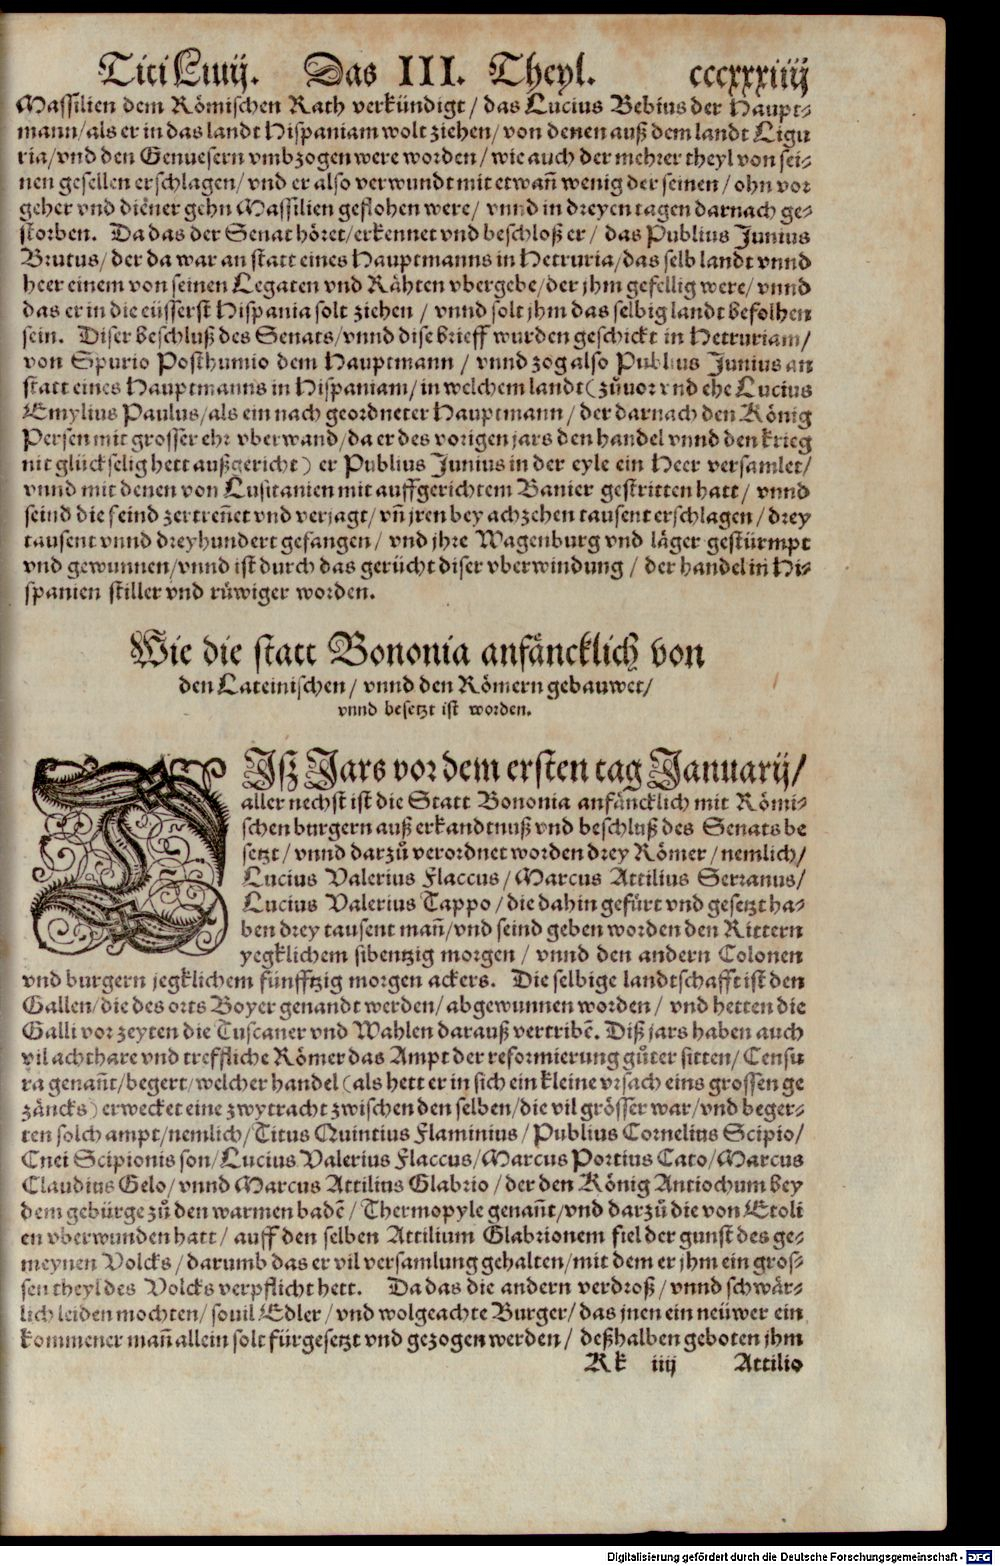 Titi Liuij. Das III. Theyl. cccxxxiiij
Massilien dem Römischen Rath verkündigt / das Lucius Bebius der Haupt-
mann / als er in das landt Hispaniam wolt ziehen / von denen auß dem landt Ligu
ria / vnd den Genuesern vmbzogen were worden / wie auch der mehrer theyl von sei-
nen gesellen erschlagen / vnd er also verwundt mit etwañ wenig der seinen / ohn vor
geher vnd diener gehn Massilien geflohen were / vnnd in dreyen tagen darnach ge-
storben. Da das der Senat höret / erkennet vnd beschloß er / das Publius Junius
Brutus / der da war an statt eines Hauptmanns in Hetruria / das selb landt vnnd
heer einem von seinen Legaten vnd Rähten vbergebe / der jhm gefellig were / vnnd
das er in die eüsserst Hispania solt ziehen / vnnd solt jhm das selbig landt befolhen
sein. Diser beschluß des Senats / vnnd dise brieff wurden geschickt in Hetruriam /
von Spurio Posthumio dem Hauptmann / vnnd zog also Publius Junius an
statt eines Hauptmanns in Hispaniam / in welchem landt ( zůuor vnd ehe Lucius
Emylius Paulus / als ein nach geordneter Hauptmann / der darnach den König
Persen mit grosser ehr vberwand / da er des vorigen jars den handel vnnd den krieg
nit glückselig hett außgericht ) er Publius Junius in der eyle ein Heer versamlet /
vnnd mit denen von Lusitanien mit auffgerichtem Banier gestritten hatt / vnnd
seind die feind zertreñet vnd verjagt / vñ jren bey achzehen tausent erschlagen / drey
tausent vnnd dreyhundert gefangen / vnd jhre Wagenburg vnd läger gestürmpt
vnd gewunnen / vnnd ist durch das gerücht diser vberwindung / der handel in Hi-
spanien stiller vnd růwiger worden.
Wie die statt Bononia anfäncklich von
den Lateinischen / vnnd den Römern gebauwet /
vnnd besetzt ist worden.
DIsz Jars vor dem ersten tag Januarij /
aller nechst ist die Statt Bononia anfäncklich mit Römi-
schen burgern auß erkandtnuß vnd beschluß des Senats be
setzt / vnnd darzů verordnet worden drey Römer / nemlich /
Lucius Valerius Flaccus / Marcus Attilius Serranus /
Lucius Valerius Tappo / die dahin gefürt vnd gesetzt ha-
ben drey tausent mañ / vnd seind geben worden den Rittern
yegklichem sibentzig morgen / vnnd den andern Colonen
vnd burgern jegklichem fünfftzig morgen ackers. Die selbige landtschafft ist den
Gallen / die des orts Boyer genandt werden / abgewunnen worden / vnd hetten die
Galli vor zeyten die Tuscaner vnd Wahlen darauß vertribē. Diß jars haben auch
vil achtbare vnd treffliche Römer das Ampt der reformierung gůter sitten / Censu
ra genañt / begert / welcher handel ( als hett er in sich ein kleine vrsach eins grossen ge
zäncks ) erwecket eine zwytracht zwischen den selben / die vil grösser war / vnd beger-
ten solch ampt / nemlich / Titus Quintius Flaminius / Publius Cornelius Scipio /
Cnei Scipionis son / Lucius Valerius Flaccus / Marcus Portius Cato / Marcus
Claudius Gelo / vnnd Marcus Attilius Glabrio / der den König Antiochum bey
dem gebürge zů den warmen badē / Thermopyle genañt / vnd darzů die von Etoli
en vberwunden hatt / auff den selben Attilium Glabrionem fiel der gunst des ge-
meynen Volcks / darumb das er vil versamlung gehalten / mit dem er jhm ein gros-
sen theyl des Volcks verpflicht hett. Da das die andern verdroß / vnnd schwär-
lich leiden mochten / souil Edler / vnd wolgeachte Burger / das jnen ein neüwer ein
kommener mañ allein solt fürgesetzt vnd gezogen werden / deßhalben geboten jhm
Kk iiij Attilio
Digitalisierung gefördert durch die Deutsche Forschungsgemeinschaft - DFG